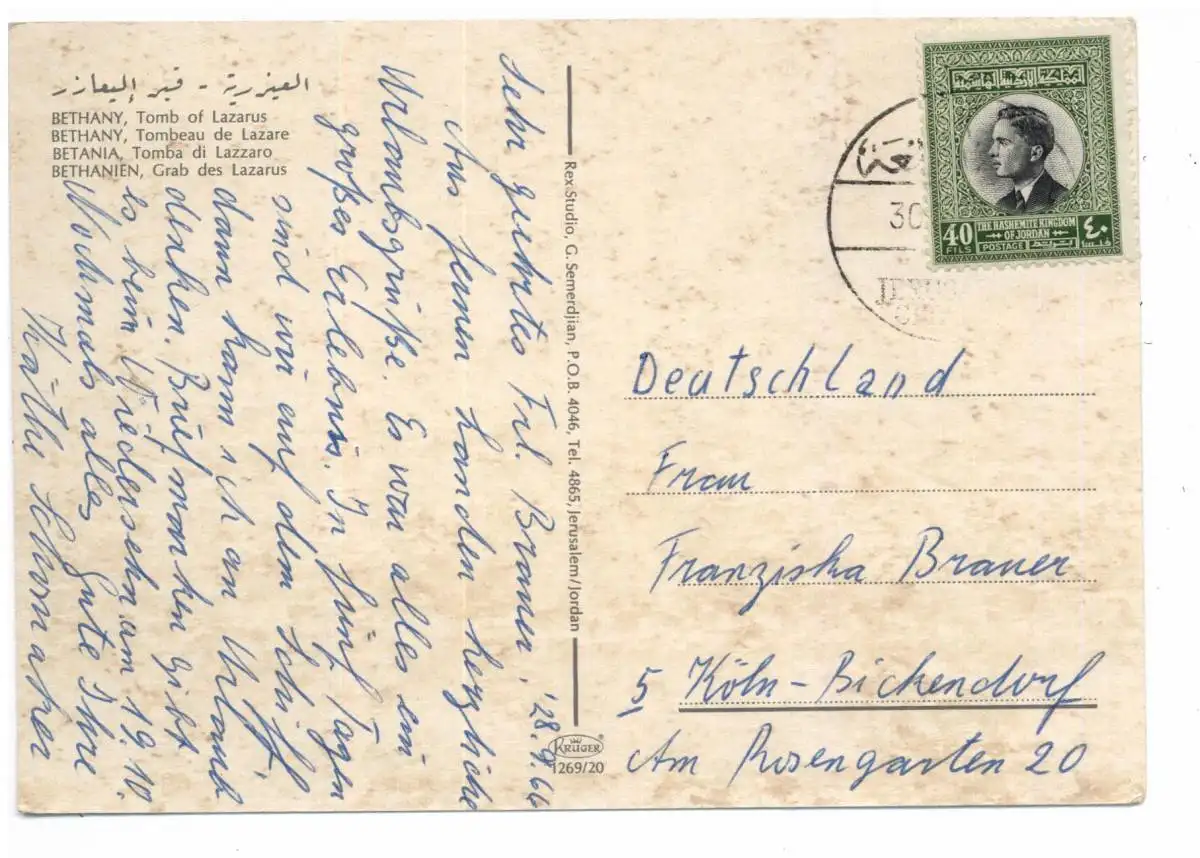 العيزرية - قبر اليعازر
BETHANY, Tomb of Lazarus
BETHANY, Tombeau de Lazare
BETANIA, Tomba di Lazzaro
BETHANIEN, Grab des Lazarus
Sehr geehrtes Frl. Brauer, 28.9.66
Aus fernen Landen herzliche
Urlaubsgrüße. Es war alles ein
großes Erlebnis. In fünf Tagen
sind wir auf dem Schiff,
dann kann ich an Urlaub
denken. Brief machen Sie bt
es beim Wiedersehn am 19.10.
Nochmals alles Gute Ihre
Käthe
Rex-Studio, G. Semerdjian, P.O.B. 4046, Tel. 4865, Jerusalem/Jordan
KRÜGER
1269/20
30
THE HASHEMITE KINGDOM
OF JORDAN
40 FILS
POSTAGE بريد
٤٠ فلس
Deutschland
Frau
Franziska Brauer
5 Köln-Bickendorf
Am Rosengarten 20